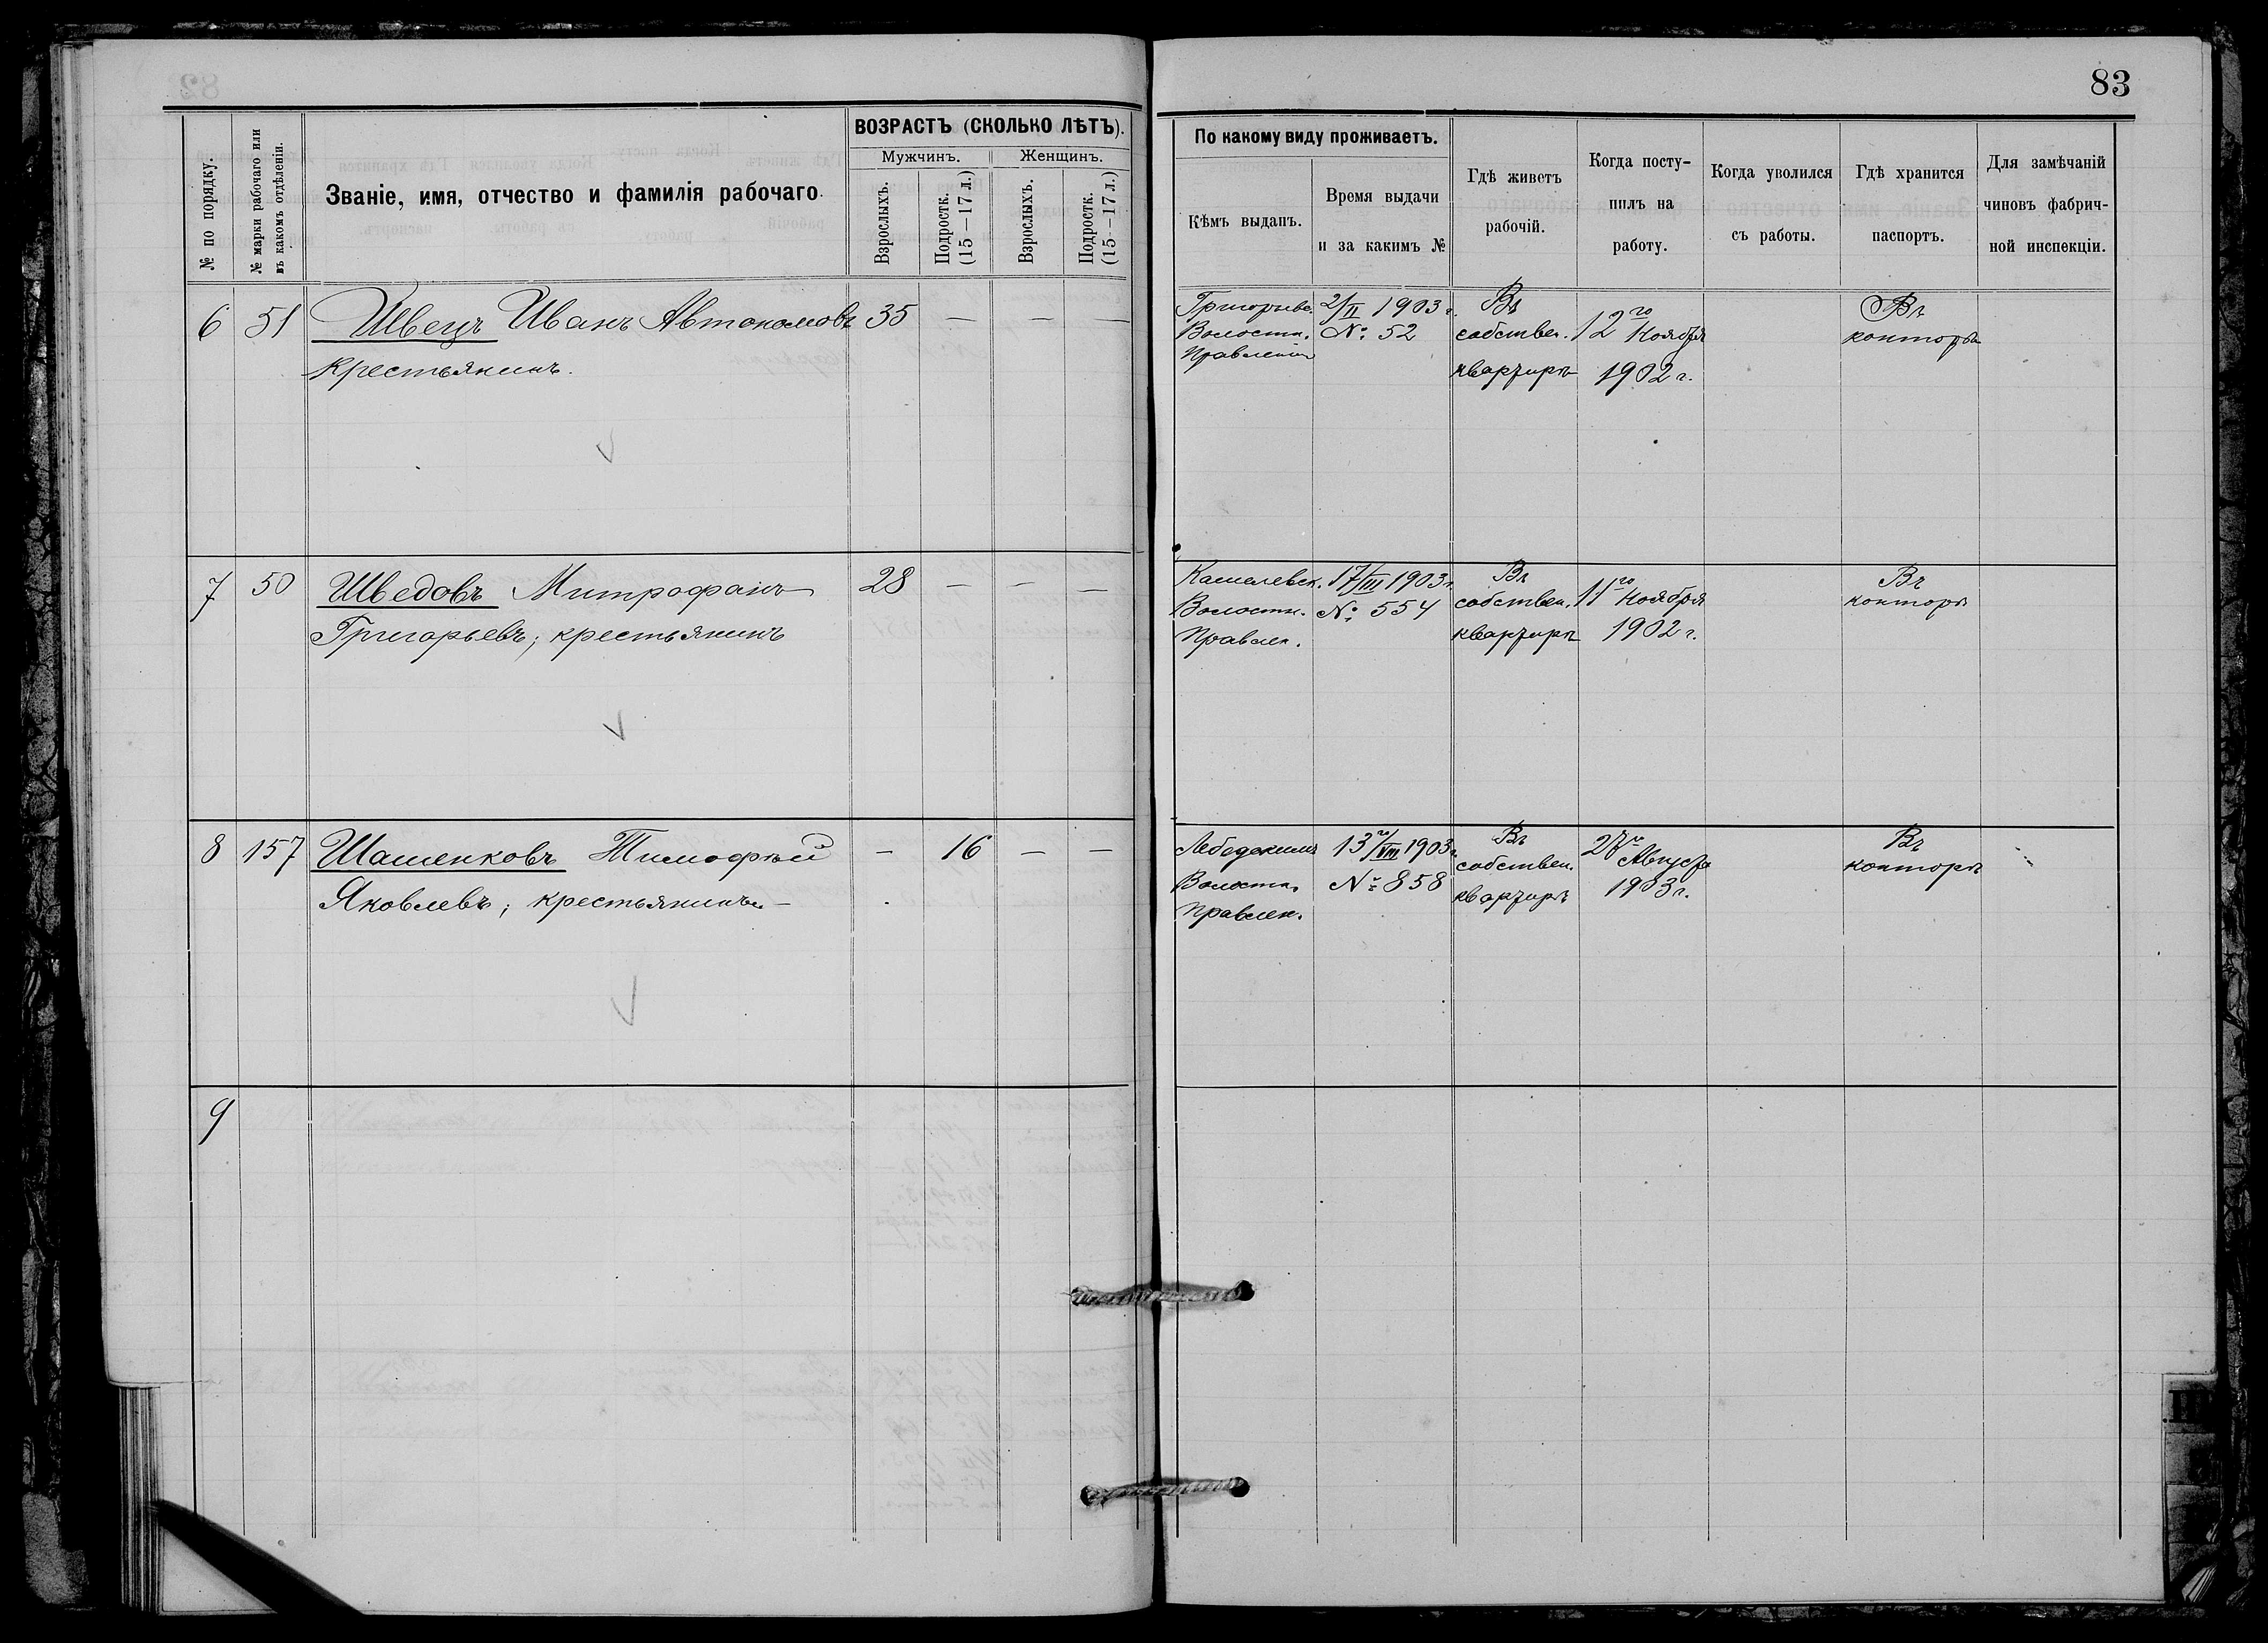 83
№ по порядку.
№ марки рабочаго или
въ какомъ отдѣленіи.
Званіе, имя, отчество и фамилія рабочаго.
ВОЗРАСТЪ (СКОЛЬКО ЛѢТЪ).
Мужчинъ.
Женщинъ.
Взрослыхъ.
Подростк.
(15—17 л.)
Взрослыхъ.
Подростк.
(15—17 л.)
По какому виду проживаетъ.
Кѣмъ выданъ.
Время выдачи
и за какимъ №
Гдѣ живетъ
рабочій.
Когда посту-
пилъ на
работу.
Когда уволился
съ работы.
Гдѣ хранится
паспортъ.
Для замѣчаній
чиновъ фабрич-
ной инспекціи.
6 51 Швецъ Иванъ Автономовъ 35 — — —
крестьянинъ.
Григорьев.
Волостн.
Правленіе
2/II 1903 г.
№ 52
Въ
собствен.
квартирѣ
12го Ноября
1902 г.
Въ
конторѣ
7 50 Шведовъ Митрофанъ 28 — — —
Григорьевъ; крестьянинъ
Волостн.
Правлен.
17/III 1903 г.
№ 554
Въ
собствен.
квартирѣ
11го Ноября
1902 г.
Въ
конторѣ
8 157 Шашенковъ Тимофѣй — 16 — —
Яковлевъ; крестьянинъ —
Волостн.
Правлен.
13го/VIII 1903 г.
№ 858
Въ
собствен.
квартирѣ
27го
Августа
1903 г.
Въ
конторѣ
9